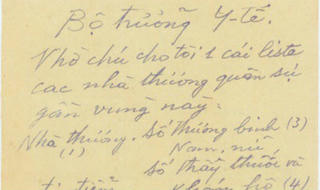 Bộ trưởng Y-tế.
Nhờ chú cho tôi 1 cái liste
các nhà thương quân sự
gần vùng này:
Nhà thương. số thương binh (3)
(1) Nam, nữ.
số thầy thuốc và
(4)